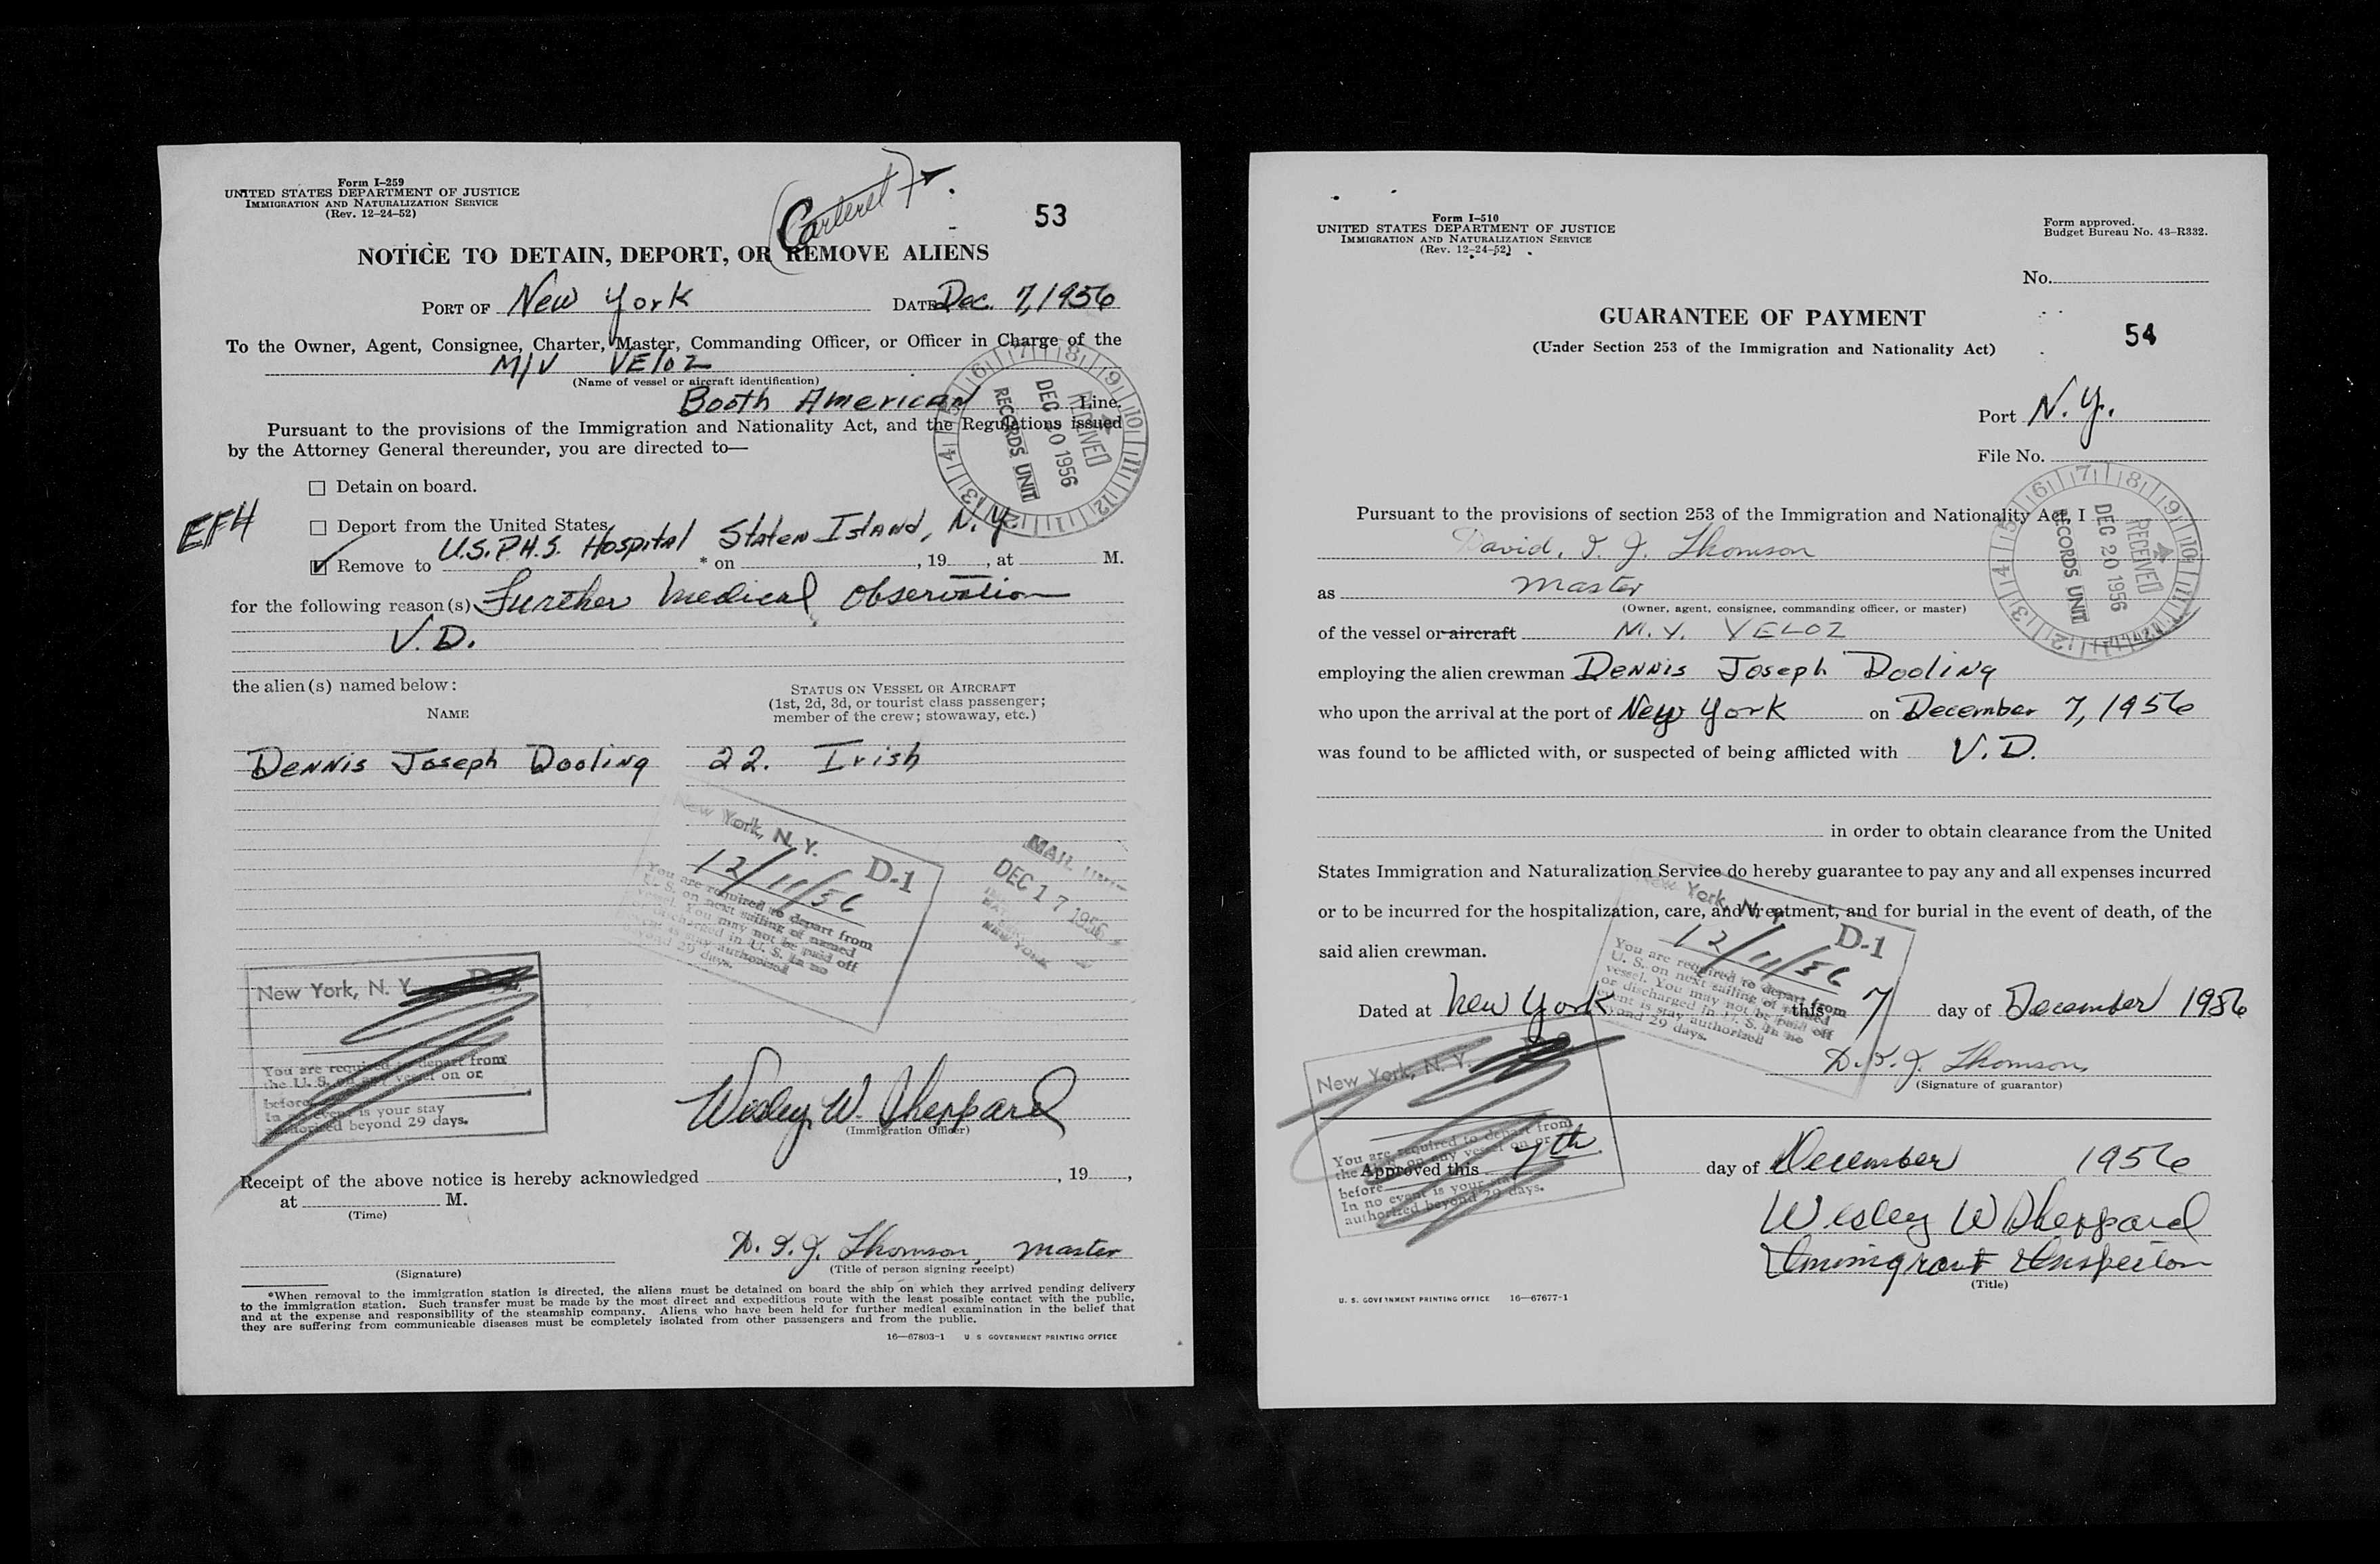 Form I-259
UNITED STATES DEPARTMENT OF JUSTICE
IMMIGRATION AND NATURALIZATION SERVICE
(Rev. 12-24-52)
(Carteret)
53
NOTICE TO DETAIN, DEPORT, OR REMOVE ALIENS
PORT OF New York DATE Dec. 7, 1956
To the Owner, Agent, Consignee, Charter, Master, Commanding Officer, or Officer in Charge of the
M/V VELOZ
(Name of vessel or aircraft identification)
Booth American Line.
Pursuant to the provisions of the Immigration and Nationality Act, and the Regulations issued
by the Attorney General thereunder, you are directed to—
RECEIVED
DEC 20 1956
RECORDS UNIT
☐ Detain on board.
EFH
☐ Deport from the United States.
☑ Remove to U.S.P.H.S. Hospital Staten Island, N.Y. * on , 19 , at M.
for the following reason(s) Further Medical Observation
V.D.
the alien(s) named below:
NAME
STATUS ON VESSEL OR AIRCRAFT
(1st, 2d, 3d, or tourist class passenger;
member of the crew; stowaway, etc.)
Dennis Joseph Dooling 22. Irish
New York, N. Y.
D-1
12/11/56
You are required to depart from
U. S. on next sailing of named
vessel. You may not be paid off
or discharged in U. S. In no
event is stay authorized
beyond 29 days.
MAIL
DEC 17 1956
NEW YORK
New York, N. Y.
You are required to depart from
the U. S. on any vessel on or
before
In no event is your stay
authorized beyond 29 days.
Wesley W. Sheppard
(Immigration Officer)
Receipt of the above notice is hereby acknowledged , 19 ,
at M.
(Time)
D. I. J. Thomson, master
(Signature)
(Title of person signing receipt)
*When removal to the immigration station is directed, the aliens must be detained on board the ship on which they arrived pending delivery
to the immigration station. Such transfer must be made by the most direct and expeditious route with the least possible contact with the public,
and at the expense and responsibility of the steamship company. Aliens who have been held for further medical examination in the belief that
they are suffering from communicable diseases must be completely isolated from other passengers and from the public.
16—67803-1 U S GOVERNMENT PRINTING OFFICE
Form I-510
UNITED STATES DEPARTMENT OF JUSTICE
IMMIGRATION AND NATURALIZATION SERVICE
(Rev. 12-24-52)
Form approved.
Budget Bureau No. 43-R332.
No.
GUARANTEE OF PAYMENT
(Under Section 253 of the Immigration and Nationality Act)
54
Port N.Y.
File No.
Pursuant to the provisions of section 253 of the Immigration and Nationality Act, I
David, I. J. Thomson
RECEIVED
DEC 20 1956
RECORDS UNIT
as master
(Owner, agent, consignee, commanding officer, or master)
of the vessel or aircraft M.V. VELOZ
employing the alien crewman Dennis Joseph Dooling
who upon the arrival at the port of New York on December 7, 1956
was found to be afflicted with, or suspected of being afflicted with V.D.
in order to obtain clearance from the United
States Immigration and Naturalization Service do hereby guarantee to pay any and all expenses incurred
or to be incurred for the hospitalization, care, and treatment, and for burial in the event of death, of the
said alien crewman.
New York, N. Y.
D-1
12/11/56
You are required to depart from
U. S. on next sailing of named
vessel. You may not be paid off
or discharged in U. S. In no
event is stay authorized
beyond 29 days.
Dated at New York this 7 day of December 1956
D. I. J. Thomson
(Signature of guarantor)
New York, N. Y.
You are required to depart from
the U. S. on any vessel on or
before
In no event is your stay
authorized beyond 29 days.
Approved this 7th day of December 1956
Wesley W Sheppard
Immigrant Inspector
(Title)
U. S. GOVERNMENT PRINTING OFFICE 16—67677-1